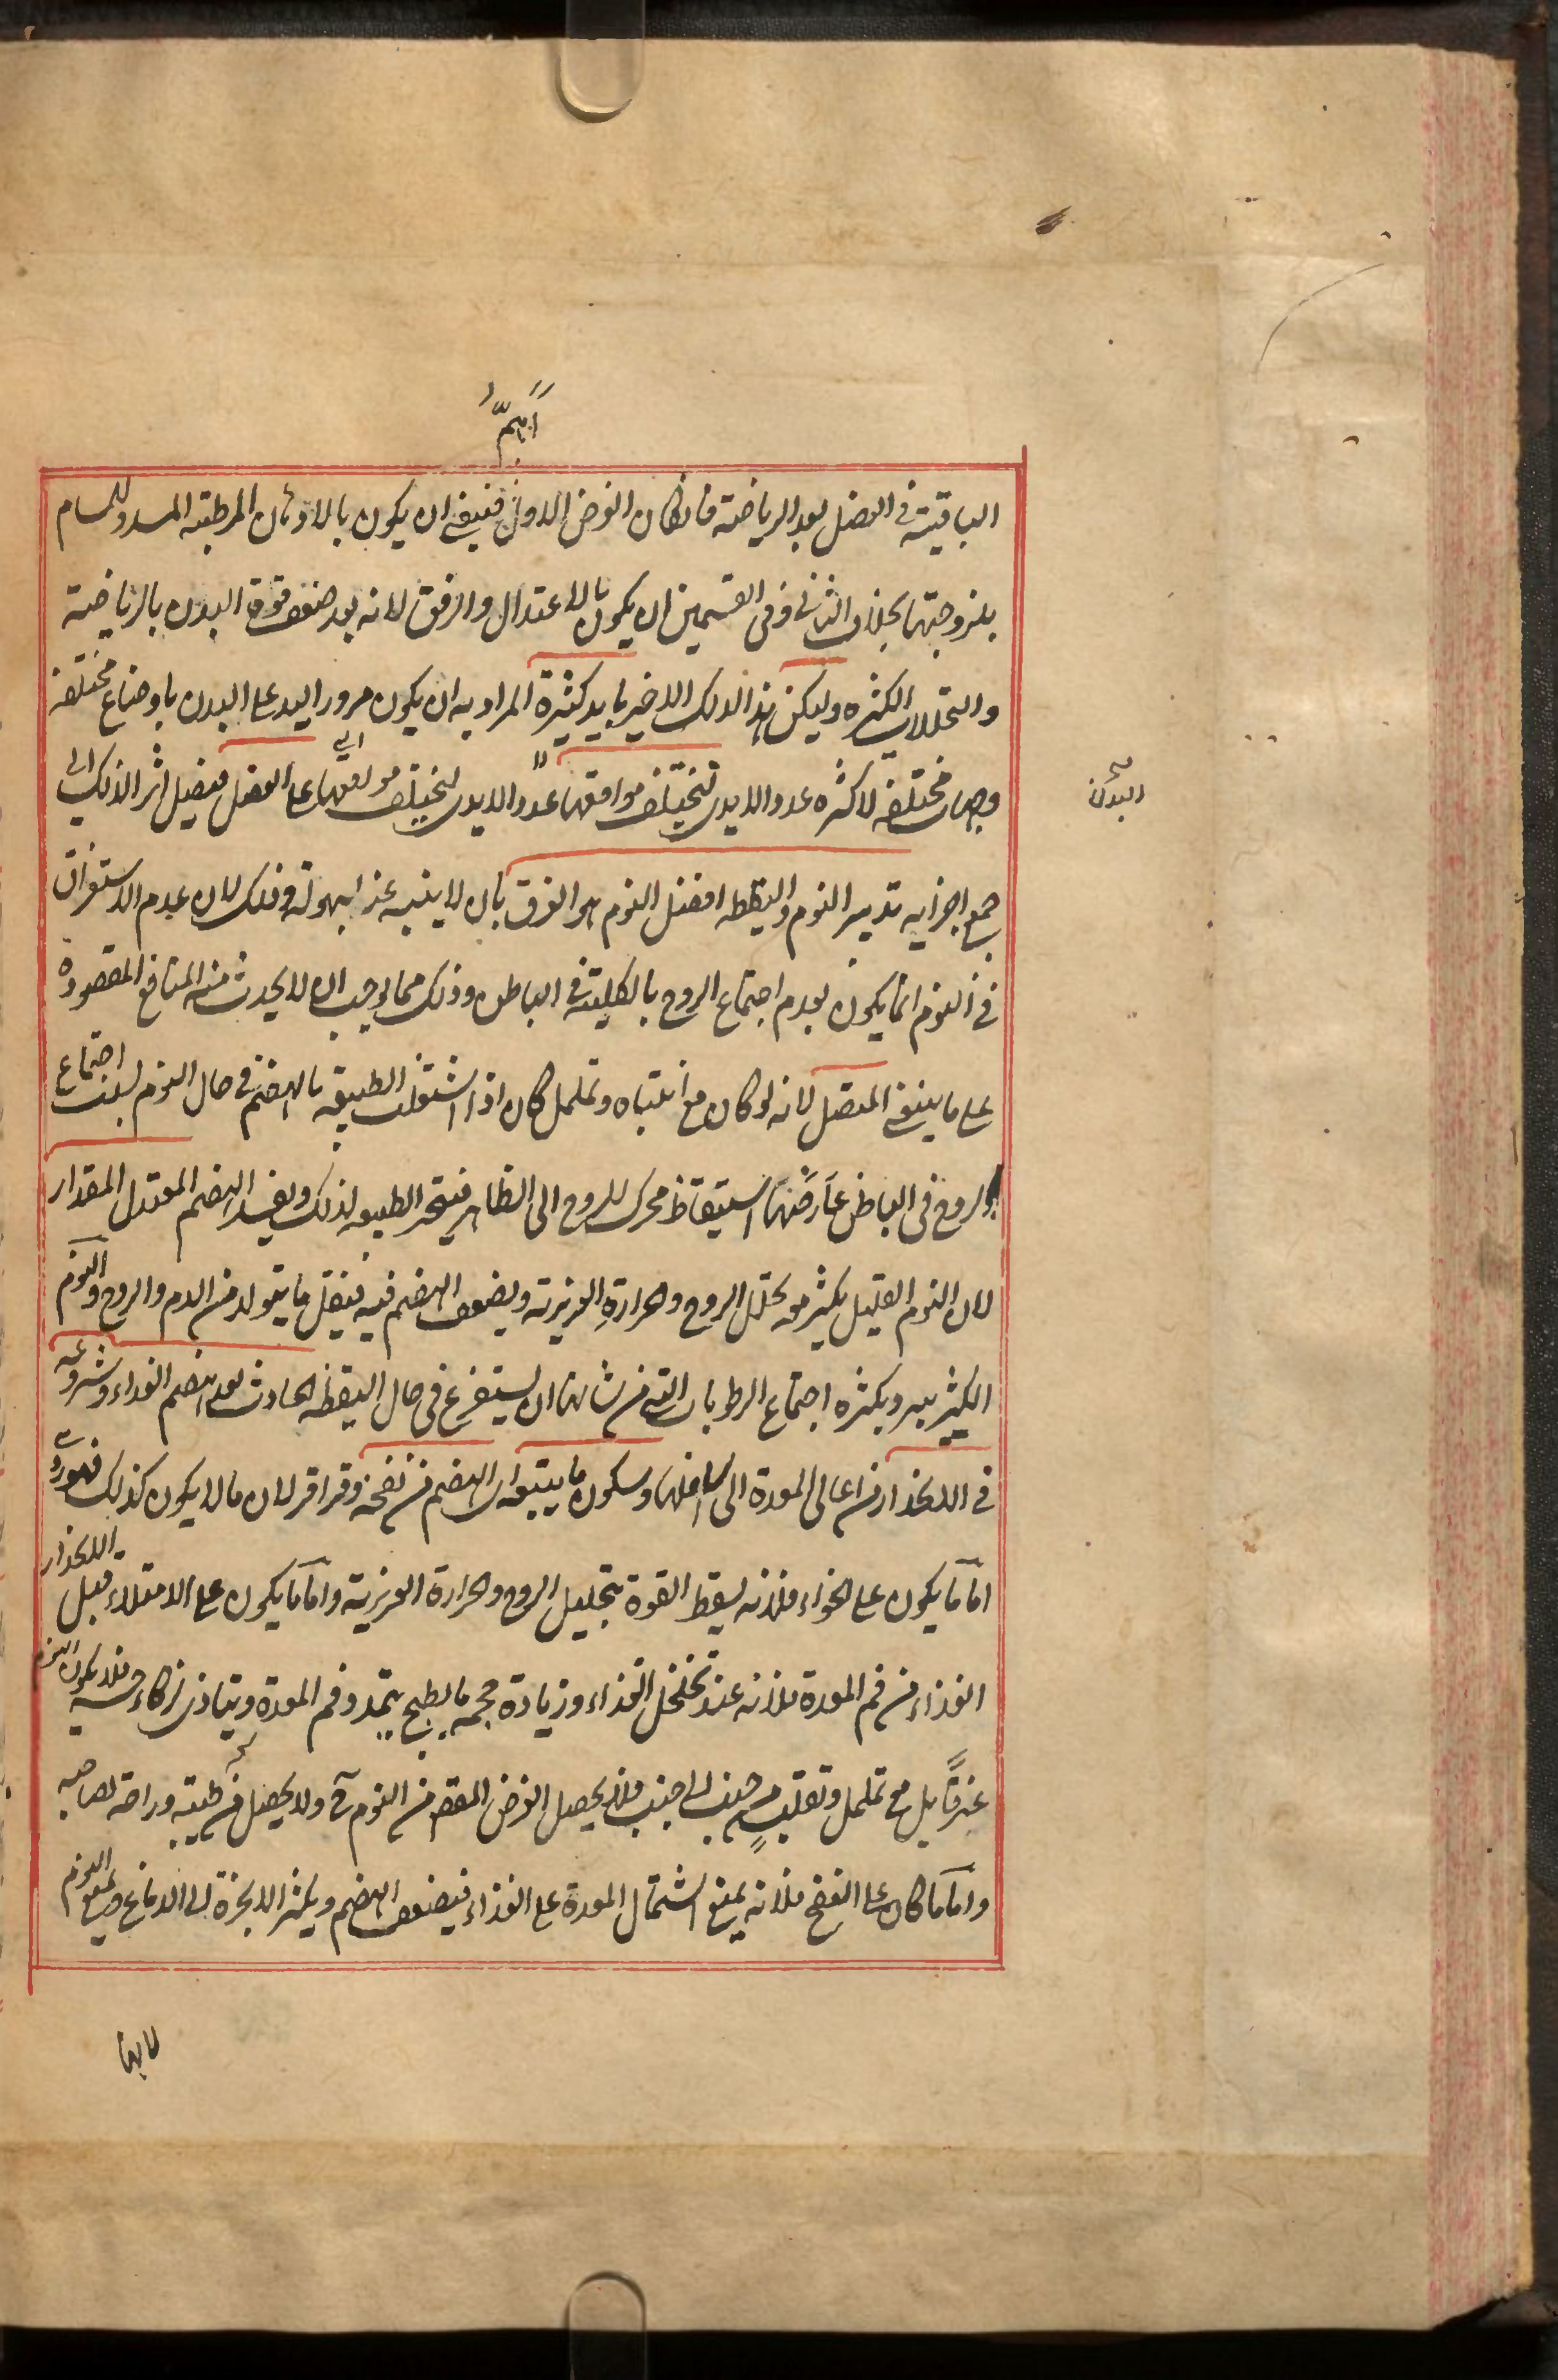 الباقية في العضل بعد الرياضة فان كان الغرض الاول فينبغي ان يكون بالادهان المرطبة المسددة للمسام
بلزوجتها بخلاف الثاني وفي القسمين ان يكون بالاعتدال والرفق لانه بعد ضعف قوة البدن بالرياضة
والتحللات الكثيره وليكن هذا الدلك الاخير بايد كثيرة المراد به ان يكون مرور اليد على البدن باوضاع مختلفة
وجهات مختلفه لا كثره عدد الايدى لتختلف مواقعها عدد الايدى لتختلف مواقعها على العضل فيصل اثر الدلك الى
البدن
جميع اجزايه تدبير النوم واليقظه افضل النوم هو الغرق بان لا ينبه عنه بسهولة وذلك لان عدم الاستغراق
في النوم انما يكون لعدم اجتماع الروح بالكلية في الباطن وذلك مما يوجب ان لا يحدث منه المنافع المقصودة
على ما ينبغي المتصل لانه لو كان مع انتباه وتململ كان اذا اشتغلت الطبيعة بالهضم في حال النوم بسبب اجتماع
الروح في الباطن عارضها استيقاظ محرك للروح الى الظاهر فيتحير الطبيعه لذلك ويفسد الهضم المعتدل المقدار
لان النوم القليل يكثر معه تحلل الروح والحرارة الغريزية ويضعف الهضم فيه فيقل ما يتولد من الدم والروح والنوم
الكثير يبرد بكثره اجتماع الرطوبات التي من شانها ان يستفرغ في حال اليقظه الحادث بعد هضم الغداء وشروعه
في الانحدار من اعالى المعدة الى اسافلها وسكون ما يتبعه اى الهضم من نفخة وقراقر لان ما لا يكون كذلك فهو ردى
اما ما يكون على الخواء فلانه يسقط القوة بتحليل الروح والحرارة الغريزية واما ما يكون على الامتلاء قبل الانحدار
الغذاء من فم المعدة فلانه عند تخلخل الغذاء وزيادة حجمه بالطبخ يتمدد فم المعدة ويتاذى لذكاء حسه فلا يكون النوم
غرقا بل مع تململ وتقلب من جنب الى جنب فلا يحصل الغرض المقصود من النوم ولا يحصل طيبة وراحة لصاحبه
واما ما كان على النفخ فلانه يمنع اشتمال المعدة على الغذاء فيضعف الهضم ويكثر الابخرة الى الدماغ النوم